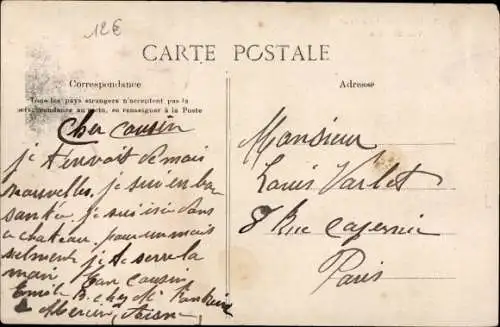 12€
CARTE POSTALE
Correspondance
Tous les pays étrangers n'acceptent pas la
correspondance au verso, se renseigner à la Poste
Cher Cousin
je t'envoit de mais
nouvelles, je sui en bon
santée, je suis isi dans
a chateau, pour un mais
sulment je te serre la
main Ton Cousin
Emile B. chez Mr
Aisne
Adresse
Monsieur
Louis Varlet
8 Rue
Paris